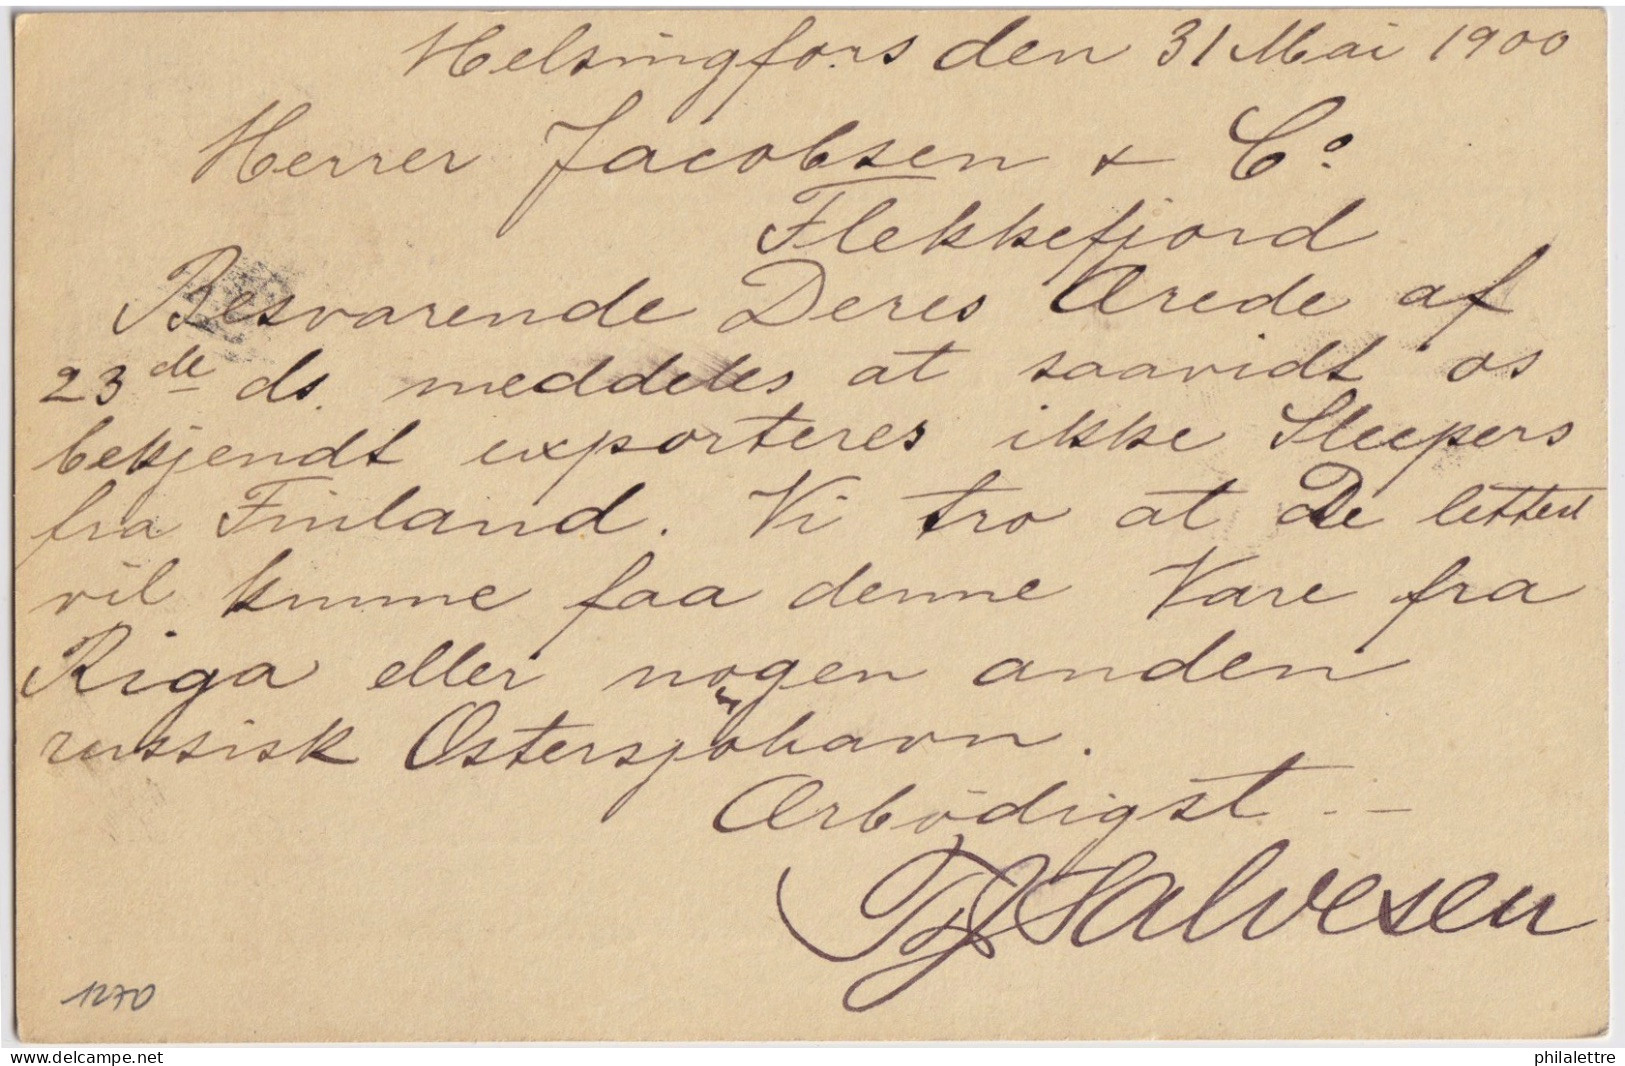 Helsingfors den 31 Mai 1900
Herrer Jacobsen & Co.
Flekkefjord
Besvarende Deres Ærede af
23de ds. meddeles at saavidt os
bekjendt exporteres ikke Sleepers
fra Finland. Vi tro at De lettest
vil kunne faa denne Vare fra
Riga eller nogen anden
russisk Østersjøhavn.
Ærbödigst
Salvesen
1270
delcampe.net
philalettre